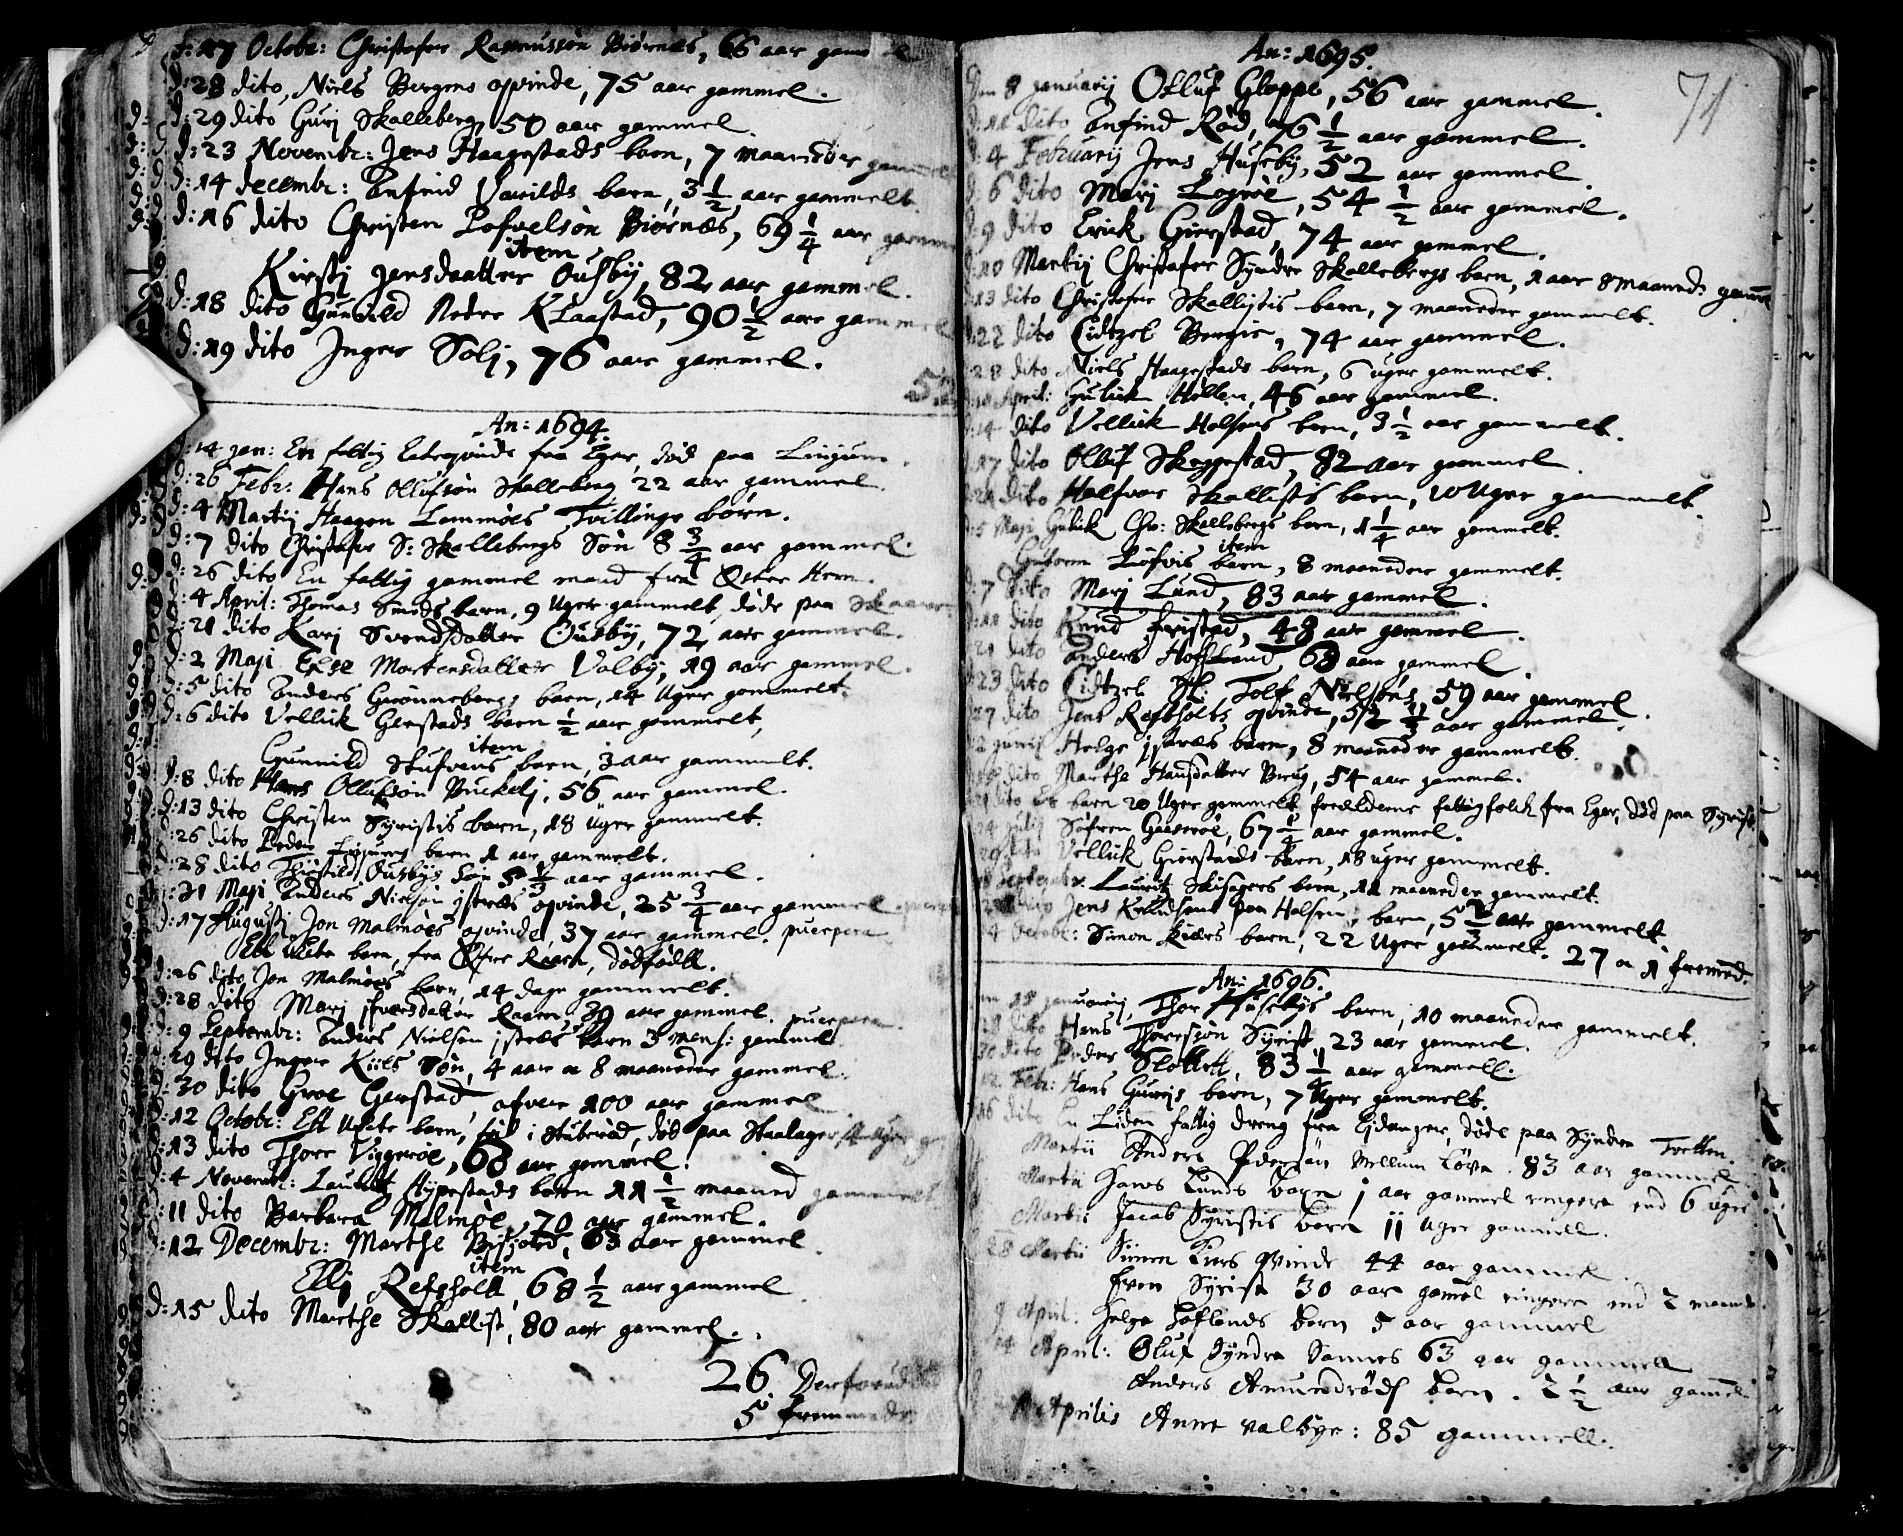 d: 17 Octobr: Christofer Rasmussøn Biørnæs, 66 aar gam
d: 28 dito, Niels Bergens qvinde, 75 aar gammel.
d: 29 dito Gurj Skalleberg, 50 aar gammel.
d: 23 Novembr: Jens Haagestads barn, 7 maaneder gammel
d: 14 decembr: Anfind Varilds barn, 3 1/2 aar gammelt.
d: 16 dito Christen Pofvelsøn Biørnæs, 69 1/4 aar gamm
item
Kirstj Jensdaatter Ousbÿ, 82 aar gammel.
d: 18 dito Gunild Nedre Klaastad, 90 1/2 aar gammel
d: 19 dito Inger Solj, 76 aar gammel.
An: 1694.
d: 14 Jan: En fattig qvinde fra Eger, død paa Linjum.
d: 26 Febr: Hans Ollufsøn Skalleberg 22 aar gammel.
d: 4 Martij Haagen Lammøes Tvillinge børn.
d: 7 dito Christofer S: Skallebergs Søn 8 3/4 aar gammel.
d: 26 dito En fattig gammel mand fra
d: 4 April: Thomas Smeds barn, 9 Uger gammelt, døde paa
d: 21 dito Karj Svendsdatter Ousbÿ, 72 aar gammel.
d: 2 Maji Else Mortensdatter Valbÿ, 19 aar gammel.
d: 5 dito Anders Grønnebergs barn, 14 Uger gammelt.
d: 6 dito Velluk Gierstads barn 1/2 aar gammelt,
item
Gunnild Stufvens barn, 3 aar gammelt.
d: 8 dito Hans Ollufsøn Buckelj, 56 aar gammel.
d: 13 dito Christen Syristis barn, 18 Uger gammelt.
26 dito Peder barn 1 aar gammelt.
28 dito Ousbÿs Søn 5 1/3 aar gammel.
d: 31 Maji Anders Nielsøn Istræs qvinde, 25 3/4 aar gammel
d: 17 Augusti Jon Malmøes qvinde, 37 aar gammel. puerpera
Ett barn, fra dødfødt.
d: 26 dito Jon Malmøes barn, 14 dage gammelt.
d: 28 dito Marj Ifversdatter Raaen 39 aar gammel. puerpera.
d: 9 Septembr: Anders Nielsøn Istræs barn 3 mens: gammel
29 dito Inger Kiels Søn, 4 aar a 8 maaneder gammel.
30 dito Groe Gierstad, ofver 100 aar gammel
d: 12 Octobr: Ett barn, i Stuberød, død paa
d: 13 dito Thore Viggerøe, 68 aar gammel.
d: 4 Novembr: Lauritz barn 11 1/2 maaned gammelt
11 dito Barbara Malmøe, 70 aar gammel.
d: 12 Decembr: Marthe 63 aar gammel
item
Ellj Refsholt, 68 1/2 aar gammel
d: 15 dito Marthe Skallist, 80 aar gammel.
26.
5 fremmede
71
An: 1695.
8 Januarij Olluf Gloppe, 56 aar gammel.
d: 11 dito Anfind Rød, 76 1/2 aar gammel.
d: 4 Februarij Jens Husebÿ, 52 aar gammel.
d: 6 dito Marj 54 1/2 aar gammel.
d: 9 dito Erick Gierstad, 74 aar gammel.
d: 10 Martij Christofer Syndre Skallebergs barn, 1 aar 8 maaned: gamm
13 dito Christofer Skallistis barn, 7 maaneder gammelt.
22 dito Lidtzel Bergie, 74 aar gammel.
28 dito Niels Haagestads barn, 6 uger gammelt.
April: Guluk Hallen, 46 aar gammel.
14 dito Velluk Holsens barn, 3 1/2 aar gammelt.
17 dito Olluf Skeggestad, 82 aar gammel.
dito Halfvor Skallistis barn, 10 Uger gammelt.
5 Maji Guluk Chr: Skallebergs barn, 1 1/4 aar gammelt.
item
Guttorm barn, 8 maaneder gammelt.
d: 7 dito Marj Lund, 83 aar gammel.
dito Knud Fristad, 48 aar gammel.
21 dito Anders Hofland, 68 aar gammel
23 dito Lidtzel Sl: Tolf Nielsøns, 59 aar gammel
27 dito Jens Refsholts qvinde, 52 1/3 aar gammel.
2 Junij Helge Istræs barn, 8 maaneder gammelt.
dito Marthe Hansdatter Brug, 54 aar gammel.
dito Et barn 20 Uger gammelt, forældrene fattigfolck fra Eger, død paa Syrist.
24 Julij Søfren Gaaserøe, 67 1/4 aar gammel.
dito Velluk Gierstads barn, 18 uger gammelt.
Septembr. Lauritz Skisagers barn, 11 maaneder gammelt.
dito Jens Knudsens paa Holsen, barn, 5 2/3 aar gammelt
4 Octobr: Simon Kiærs barn, 22 Uger gammelt. 27 a 1 fremmed.
An: 1696.
18 Januarij, Thor Husebÿs barn, 10 maaneder gammelt.
dito Hans Thoresøn Syrist, 23 aar gammel.
30 dito Peder Slottet, 83 1/4 aar gammell.
12 Febr: Hans Gurijs barn, 7 Uger gammelt.
16 dito En Liden fattig dreng fra Eidanger, døde paa Syndre Tvetten.
Martii Anders Pedersøn Mellum Løve. 83 aar gammel
Martii Hans Lunds barn 1 aar gammel ringere end 6 uger
Martii Jacob Syristis barn 11 uger gammell.
28 Martii Simen Kiers Qvinde 44 aar gammel
Even Syrist 30 aar gamel ringere end 2 maan
9 April. Helge Hoflands barn 5 aar gammel
14 April: Oluf Syndre Sannes 63 aar gammell
Anders Amundrøds barn. 2 1/2 aar gamel
Aprilis Anne Valbye: 85 gammell.